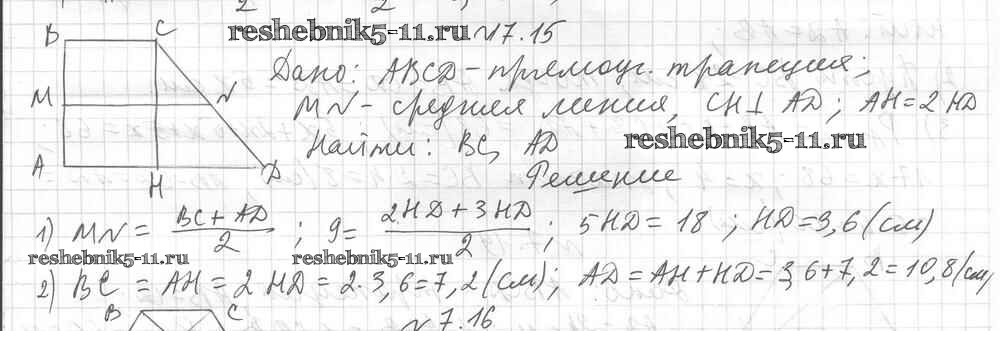 reshebnik5-11.ru №17.15
B C
Дано: ABCD - прямоуг. трапеция;
M N
MN - средняя линия, CH ⊥ AD; AH = 2 HD
Найти: BC, AD
reshebnik5-11.ru
A H D
Решение
1) MN = BC + AD / 2 ; 9 = 2HD + 3HD / 2 ; 5HD = 18 ; HD = 3,6 (см)
reshebnik5-11.ru reshebnik5-11.ru
2) BC = AH = 2 HD = 2 · 3,6 = 7,2 (см); AD = AH + HD = 3,6 + 7,2 = 10,8 (см)
B C
№7.16